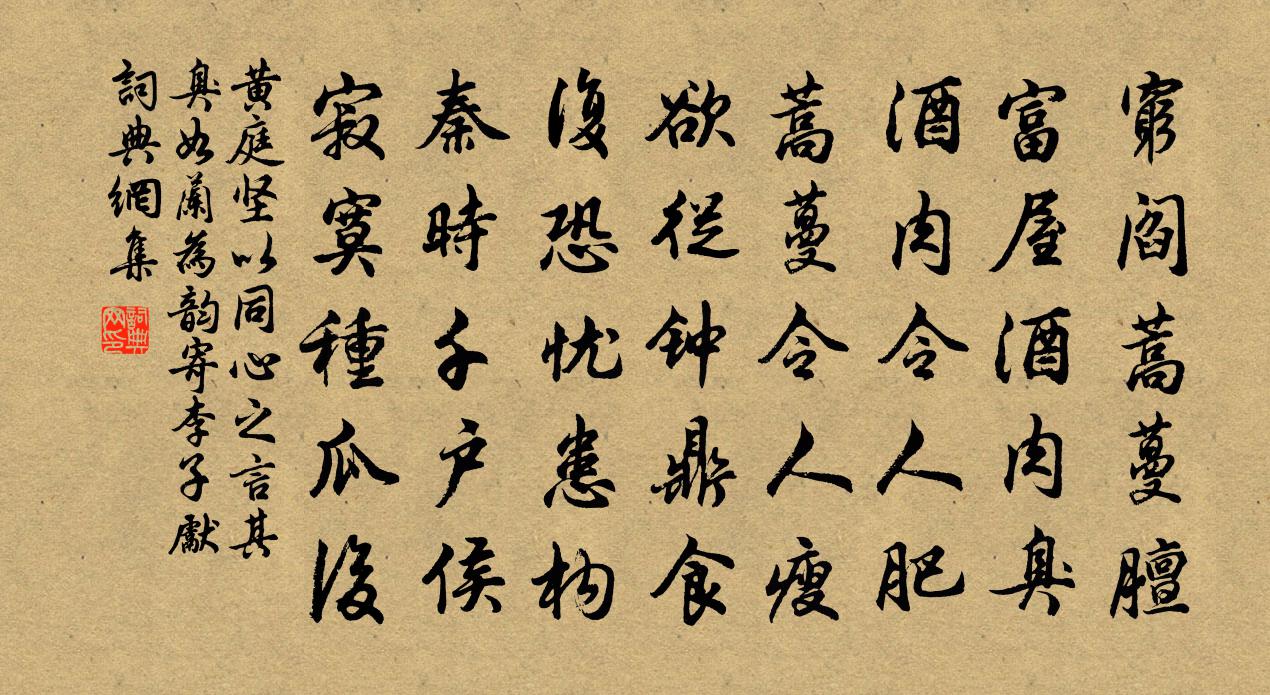 窮閻蒿蔓膻
富屋酒肉臭
酒肉令人肥
蒿蔓令人瘦
欲從钟鼎食
復恐忧患构
秦時千户侯
寂寞種瓜後
黄庭坚以同心之言其
臭如蘭為韵寄李子獻
詞典網集
詞典网印